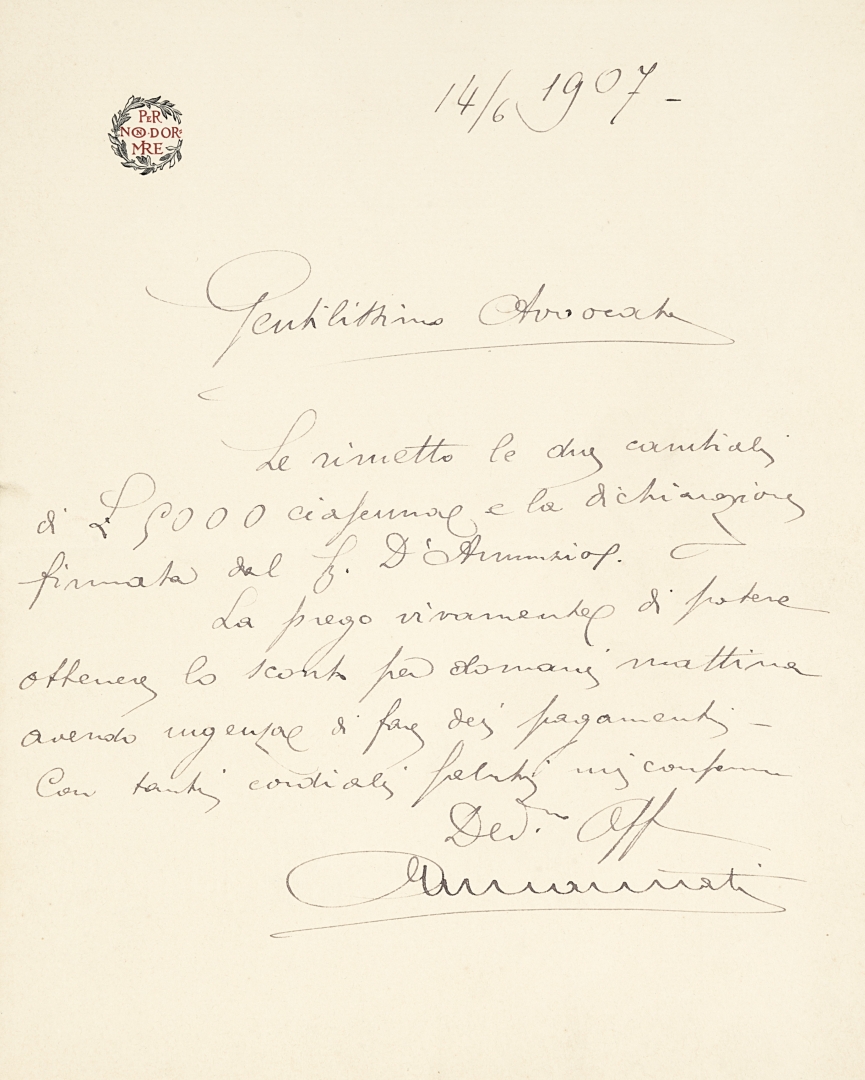 14/6 1907 -
PER
NON DOR
MIRE
Gentilissimo Avvocato
Le rimetto le due cambiali
di L 5000 ciascuna e la dichiarazione
firmata dal S. D'Annunzio.
La prego vivamente di potere
ottenere lo sconto per domani mattina
avendo urgenza di fare dei pagamenti -
Con tanti cordiali saluti mi confermo
Dev.mo Aff